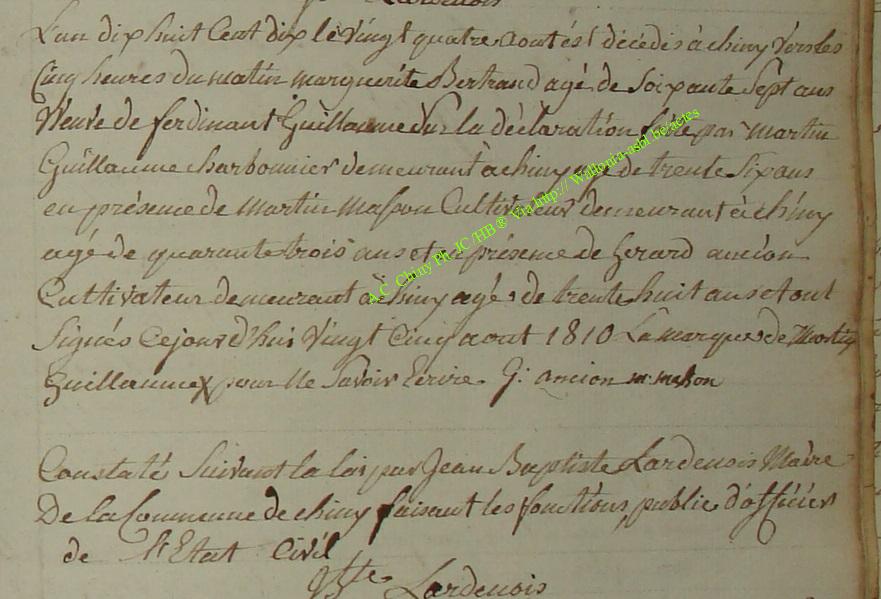 Lardenois
L'an dix huit Cent dix le vingt quatre aout est décédés à chiny vers les
Cinq heures du matin marguerite Bertrand agé de Soixante Sept ans
Veuve de ferdinant Guillaume Sur la déclaration faite par martin
Guillaume charbonnier demeurant a chiny agé de trente Six ans
en présence de martin masson Cultivateur demeurant à chiny
agé de quarante trois ans et en présence de Gerard ancion
Cultivateur demeurant à chiny agé de trente huit ans et ont
Signés Cejourd'hui Vingt Cinq aout 1810 La marque de Martin
Guillaume X pour Ne Savoir Ecrire. G: ancion m: masson
Constaté Suivant la loi par Jean Baptiste Lardenois Maire
De la Commune de chiny faisant les fonctions public d'officier
de l'Etat Civil
Bte Lardenois
A.C. Chiny Ph. JC /HB ® Via http:// Wallonia-asbl.be/actes